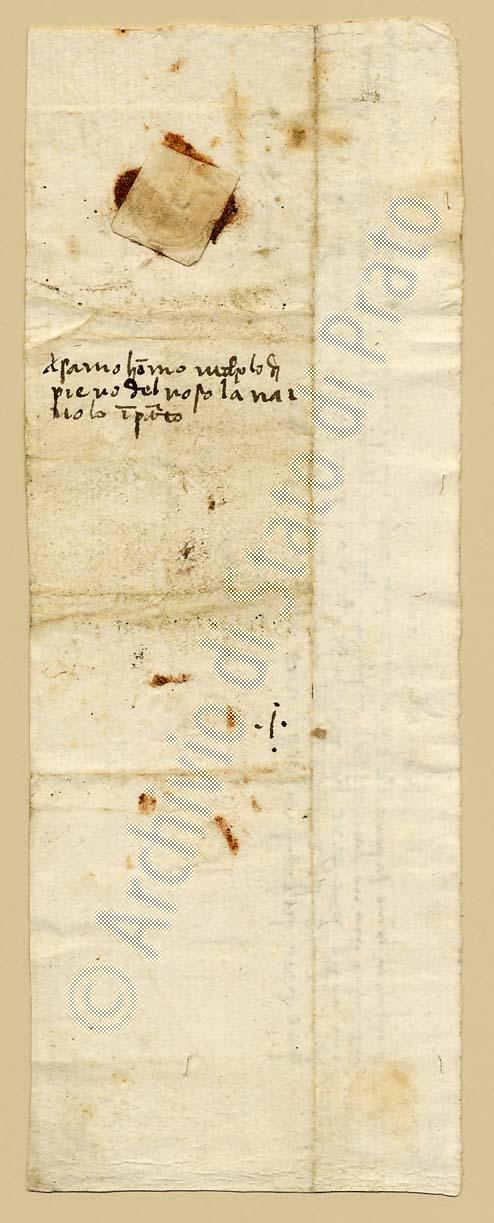 A savio homo nicholo di
piero del roso lanai
uolo in prato
·/·
© Archivio di Stato di Prato